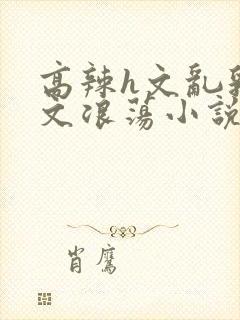 高辣h文亂
文浪蕩小說
肖鷹